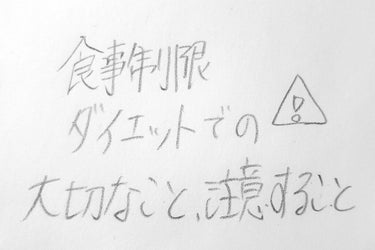 食事制限
ダイエットでの
大切なこと、注意すること